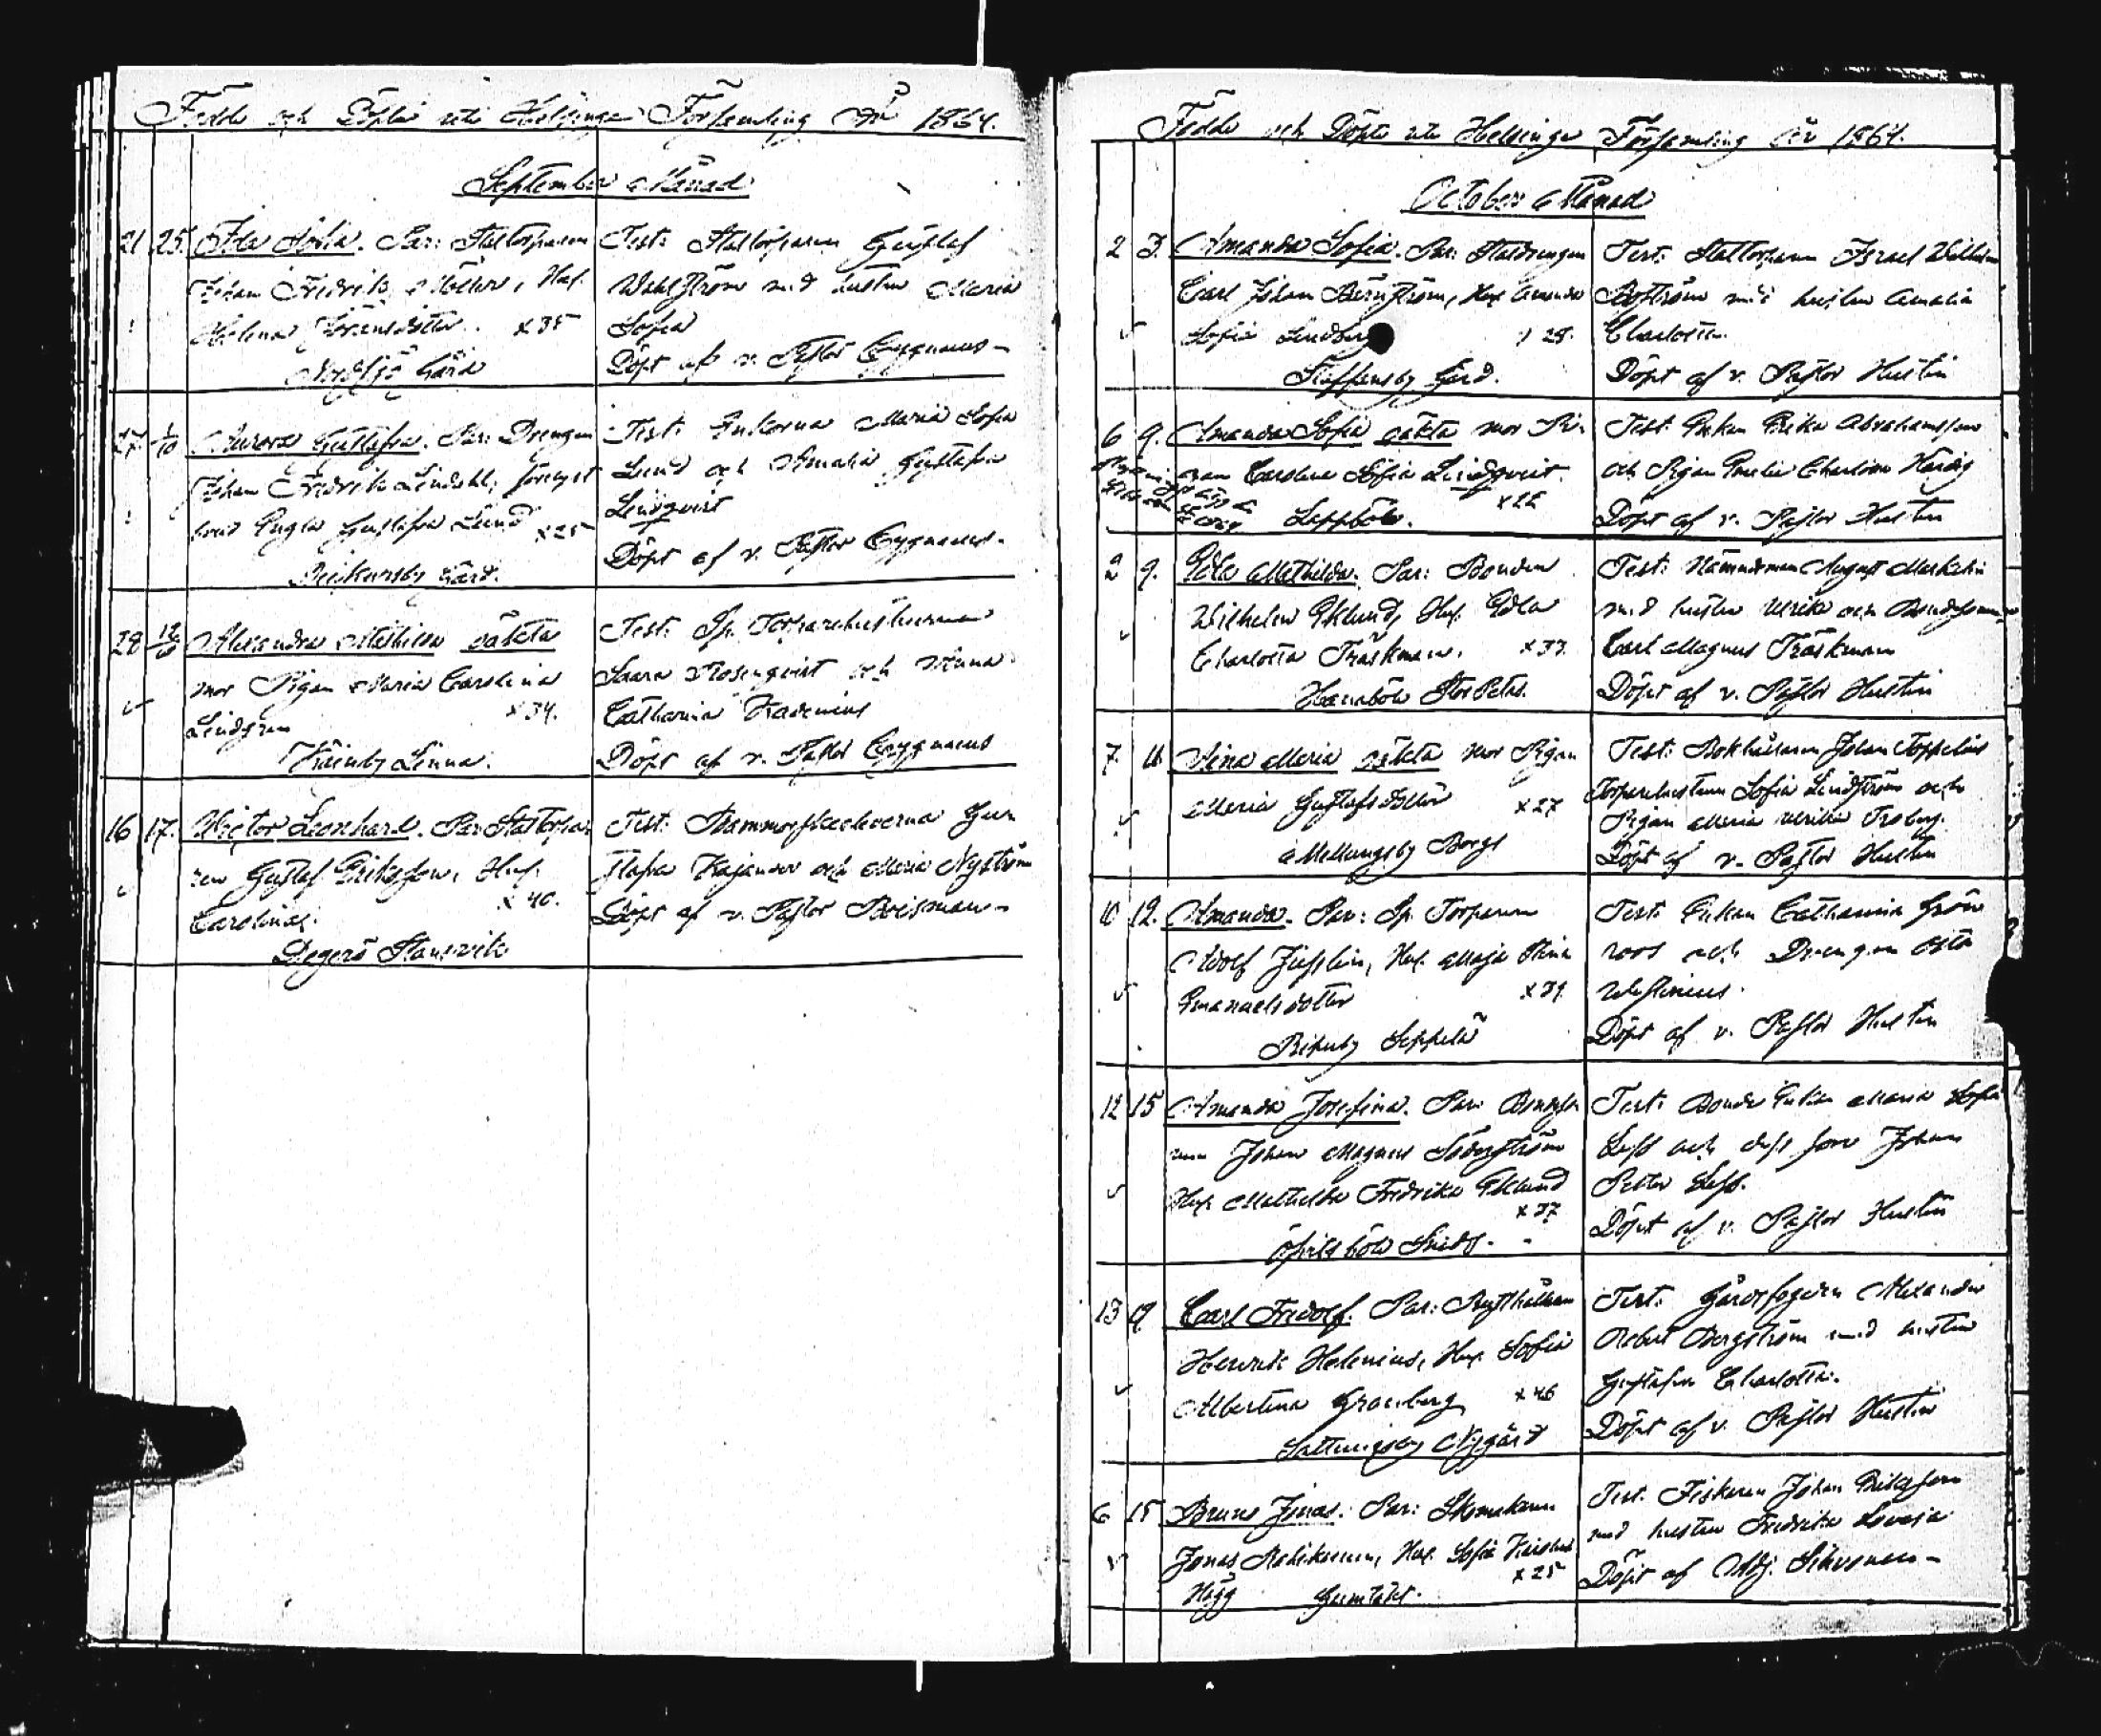 Födde och Döpte uti Helsinge Församling År 1864.
September Månad
21 25. Ida Sofia. Par: Stattorparen
Johan Fredrik Möller, Hu.
Helena Göransdotter. x35
Nordsjö Gård
Test: Stattorparen Gustaf
Wahlström med hustru Maria
Sofia
Döpt af v. Pastor Cygnaeus
27 1/10 Aurora Gustafva. Par: Drengen
Johan Fredrik Lindahl, förlofvad
Gustafva Lund x25
Test: Enkorna Maria Sofia
Lund och Amalia Gustafva
Lindqvist
Döpt af v. Pastor Cygnaeus
Gård.
28 Alexandra Mathilda oäkta
mor Pigan Maria Carolina
Lindgren x34.
Linna.
Test: Sp. Torparehustrurna
Saara Rosenqvist och Anna
Catharina
Döpt af v. Pastor Cygnaeus
16 17. Victor Leonhard. Par: Stattorpar
ren Gustaf Eriksson, Hu.
Carolina. x 40.
Degerö Stansvik
Test: Mammorskaelverna Gu
stafva Kajander och Maria Nyström
Döpt af v. Pastor Boisman
Födde och Döpte uti Helsinge Församling år 1864.
October Månad
2 3. Amanda Sofia. Par: Statdrengen
Carl Johan Bergström, Hu. Amanda
Sofia Lindberg 28.
Staffansby Gård.
Test: Stattorparen Israel Wilhelm
Boström med hustru Amalia
Charlotta.
Döpt af v. Pastor Hustin
6 9. Amanda Sofia oäkta mor Pi-
gan Carolina Sofia Lindqvist.
x22
Test: Enkan Erika Abrahamsson
och Pigan Emelie Charlotta
Döpt af v. Pastor Hustin
2 9. Edla Mathilda. Par: Bonden
Wilhelm Eklund, Hu. Edla
Charlotta Träskman. x33
Hanaböle Stor Petas.
Test: Nämndeman August
med hustru Ulrika och Bondesonen
Carl Magnus Träskman
Döpt af v. Pastor Hustin
7. 11. Aina Maria oäkta mor Pigan
Maria Gustafsdotter x27
Mellungsby Borgs
Test: Bokhållaren Johan Toppelius
Torparehustrun Sofia Lindström och
Pigan Maria Ulrika
Döpt af v. Pastor Hustin
10 12. Amanda. Par: Sp. Torparen
Adolf Zisslin, Hu. Maja Stina
Emanuelsdotter x39
Seppelä
Test: Enkan Catharina Grön
roos och Drengen
Döpt af v. Pastor Hustin
12 15 Amanda Josefina. Par:
Johan Magnus Söderström
Hu. Mathilda Fredrika Eklund
x37
Test: Bonde Enkan Maria Sofia
Leff och dess son Johan
Petter Leff.
Döpt af v. Pastor Hustin
13 9. Carl Fridolf. Par: Rusthållaren
Henrik Helenius, Hu. Sofia
Albertina Granberg x46
Sottungsby Nygård
Test: Gårdsfogden Alexander
Robert Bergström med hustru
Gustafva Charlotta.
Döpt af v. Pastor Hustin
6 15 Bruno Jonas. Par: Skomakaren
Jonas Hu. Sofia
Hägg Gumtäkt. x25
Test: Fiskaren Johan Eriksson
med hustru Fredrika Lovisa
Döpt af Adj. Sihvonen